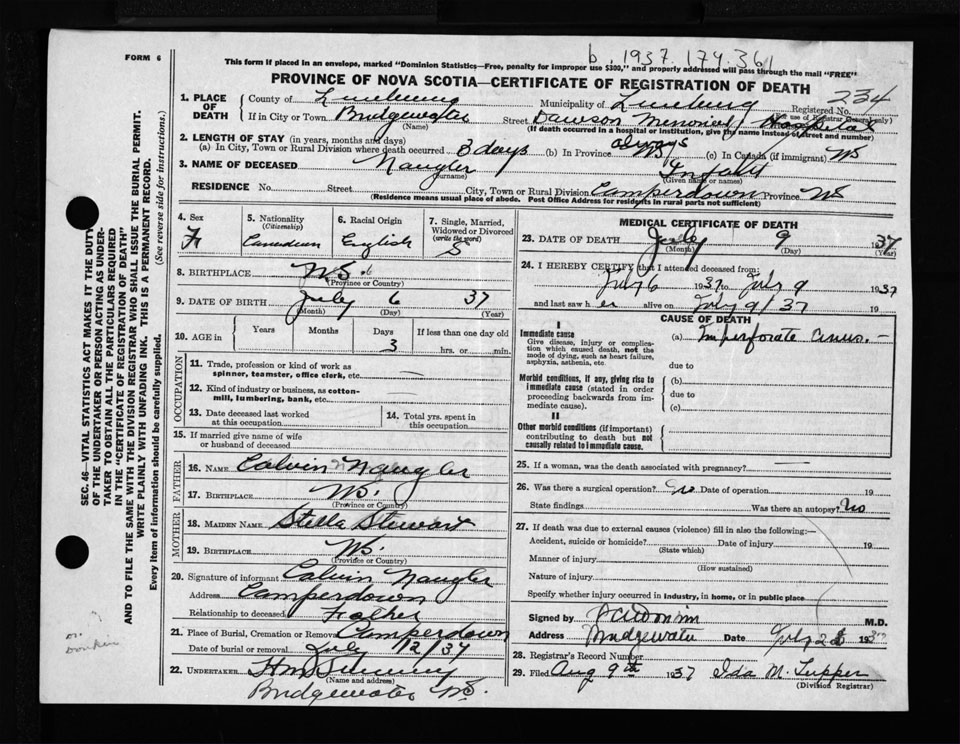 FORM 6
b. 1937. 174.361
This form if placed in an envelope, marked "Dominion Statistics—Free, penalty for improper use $300," and properly addressed will pass through the mail "FREE"
PROVINCE OF NOVA SCOTIA—CERTIFICATE OF REGISTRATION OF DEATH
1. PLACE OF DEATH County of Lunenburg Municipality of Lunenburg Registered No. 234
If in City or Town Bridgewater Street Dawson Memorial Hospital
(Name) (If death occurred in a hospital or institution, give the name instead of street and number)
2. LENGTH OF STAY (in years, months and days)
(a) In City, Town or Rural Division where death occurred 3 days (b) In Province always NS (c) In Canada (if immigrant) NS
3. NAME OF DECEASED Naugler Infant
(Surname) (Given name or names)
RESIDENCE No. Street City, Town or Rural Division Camperdown Province NS
(Residence means usual place of abode. Post Office Address for residents in rural parts not sufficient)
4. Sex F
5. Nationality (Citizenship) Canadian
6. Racial Origin English
7. Single, Married, Widowed or Divorced (write the word) S
8. BIRTHPLACE N.S.
(Province or Country)
9. DATE OF BIRTH July 6 37
(Month) (Day) (Year)
10. AGE in Years Months Days 3 If less than one day old hrs. or min.
OCCUPATION
11. Trade, profession or kind of work as spinner, teamster, office clerk, etc.
12. Kind of industry or business, as cotton-mill, lumbering, bank, etc.
13. Date deceased last worked at this occupation
14. Total yrs. spent in this occupation
15. If married give name of wife or husband of deceased
FATHER
16. NAME Calvin Naugler
17. BIRTHPLACE NS.
(Province or Country)
MOTHER
18. MAIDEN NAME Stella Stewart
19. BIRTHPLACE NS.
(Province or Country)
20. Signature of informant Calvin Naugler
Address Camperdown
Relationship to deceased Father
21. Place of Burial, Cremation or Removal Camperdown
Date of burial or removal July 12/37
22. UNDERTAKER
(Name and address)
Bridgewater NS.
MEDICAL CERTIFICATE OF DEATH
23. DATE OF DEATH July 9 1937
(Month) (Day) (Year)
24. I HEREBY CERTIFY that I attended deceased from:
July 6 1937 to July 9 1937
and last saw her alive on July 9/37 19
CAUSE OF DEATH
I
Immediate cause
Give disease, injury or complication which caused death, not the mode of dying, such as heart failure, asphyxia, asthenia, etc.
(a) Imperforate Anus.
due to
Morbid conditions, if any, giving rise to immediate cause (stated in order proceeding backwards from immediate cause).
(b)
due to
(c)
II
Other morbid conditions (if important) contributing to death but not causally related to immediate cause.
25. If a woman, was the death associated with pregnancy?
26. Was there a surgical operation? No Date of operation 19
State findings Was there an autopsy? No
27. If death was due to external causes (violence) fill in also the following:—
Accident, suicide or homicide? Date of injury 19
(State which)
Manner of injury
(How sustained)
Nature of injury
Specify whether injury occurred in Industry, in home, or in public place
Signed by M.D.
Address Bridgewater Date July 1937
28. Registrar's Record Number
29. Filed Aug 9th 1937 Ida M. Tupper
(Division Registrar)
SEC. 46—VITAL STATISTICS ACT MAKES IT THE DUTY
OF THE UNDERTAKER OR PERSON ACTING AS UNDER-
TAKER TO OBTAIN ALL THE PARTICULARS REQUIRED
IN THE "CERTIFICATE OF REGISTRATION OF DEATH"
AND TO FILE THE SAME WITH THE DIVISION REGISTRAR WHO SHALL ISSUE THE BURIAL PERMIT.
WRITE PLAINLY WITH UNFADING INK. THIS IS A PERMANENT RECORD.
Every item of information should be carefully supplied. (See reverse side for instructions.)